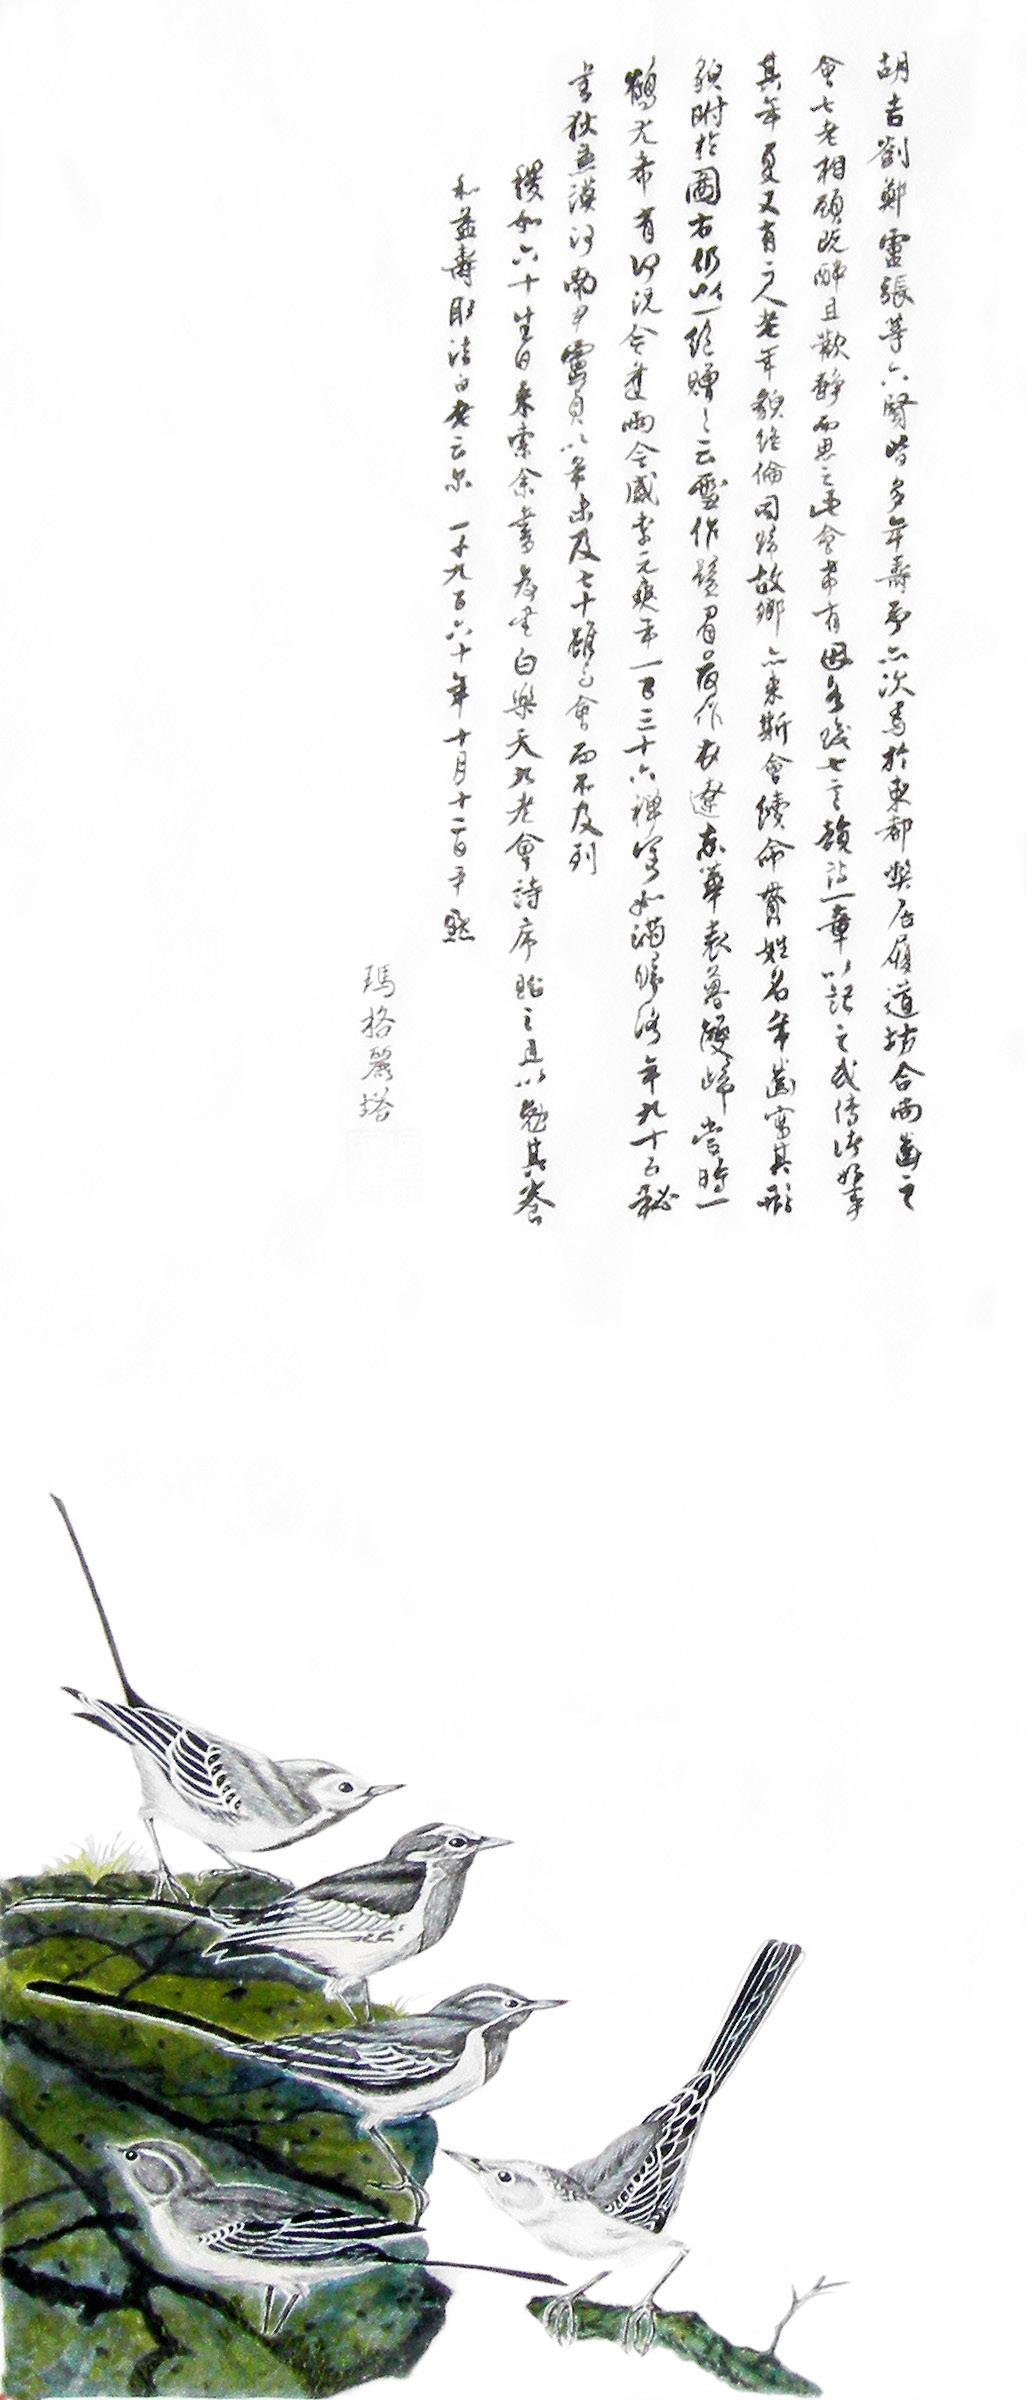 胡吉劉鄭盧張等六賢皆多年壽予亦次焉於東都弊居履道坊合尚齒之
會七老相顧既醉且歡靜而思之此會希有因各賦七言韻詩一章以記之或傳諸好事
其年夏又有二人老年貌絕倫同歸故鄉亦來斯會續命書姓名年齒寫其形
貌附於圖右仍以一絕贈之云雪作鬚眉雲作衣遼東華表暮雙歸當時一
鶴尤希有何況今逢兩令威李元爽年一百三十六禪僧如滿歸洛年九十五秘
書狄兼謨河南尹盧貞以年未及七十雖與會而不及列
稷如六十生日來索余書為書白樂天九老會詩序貽之且以勉其養
和益壽取法白老云尔 一千九百六十年十月十二日尹默
瑪格麗塔